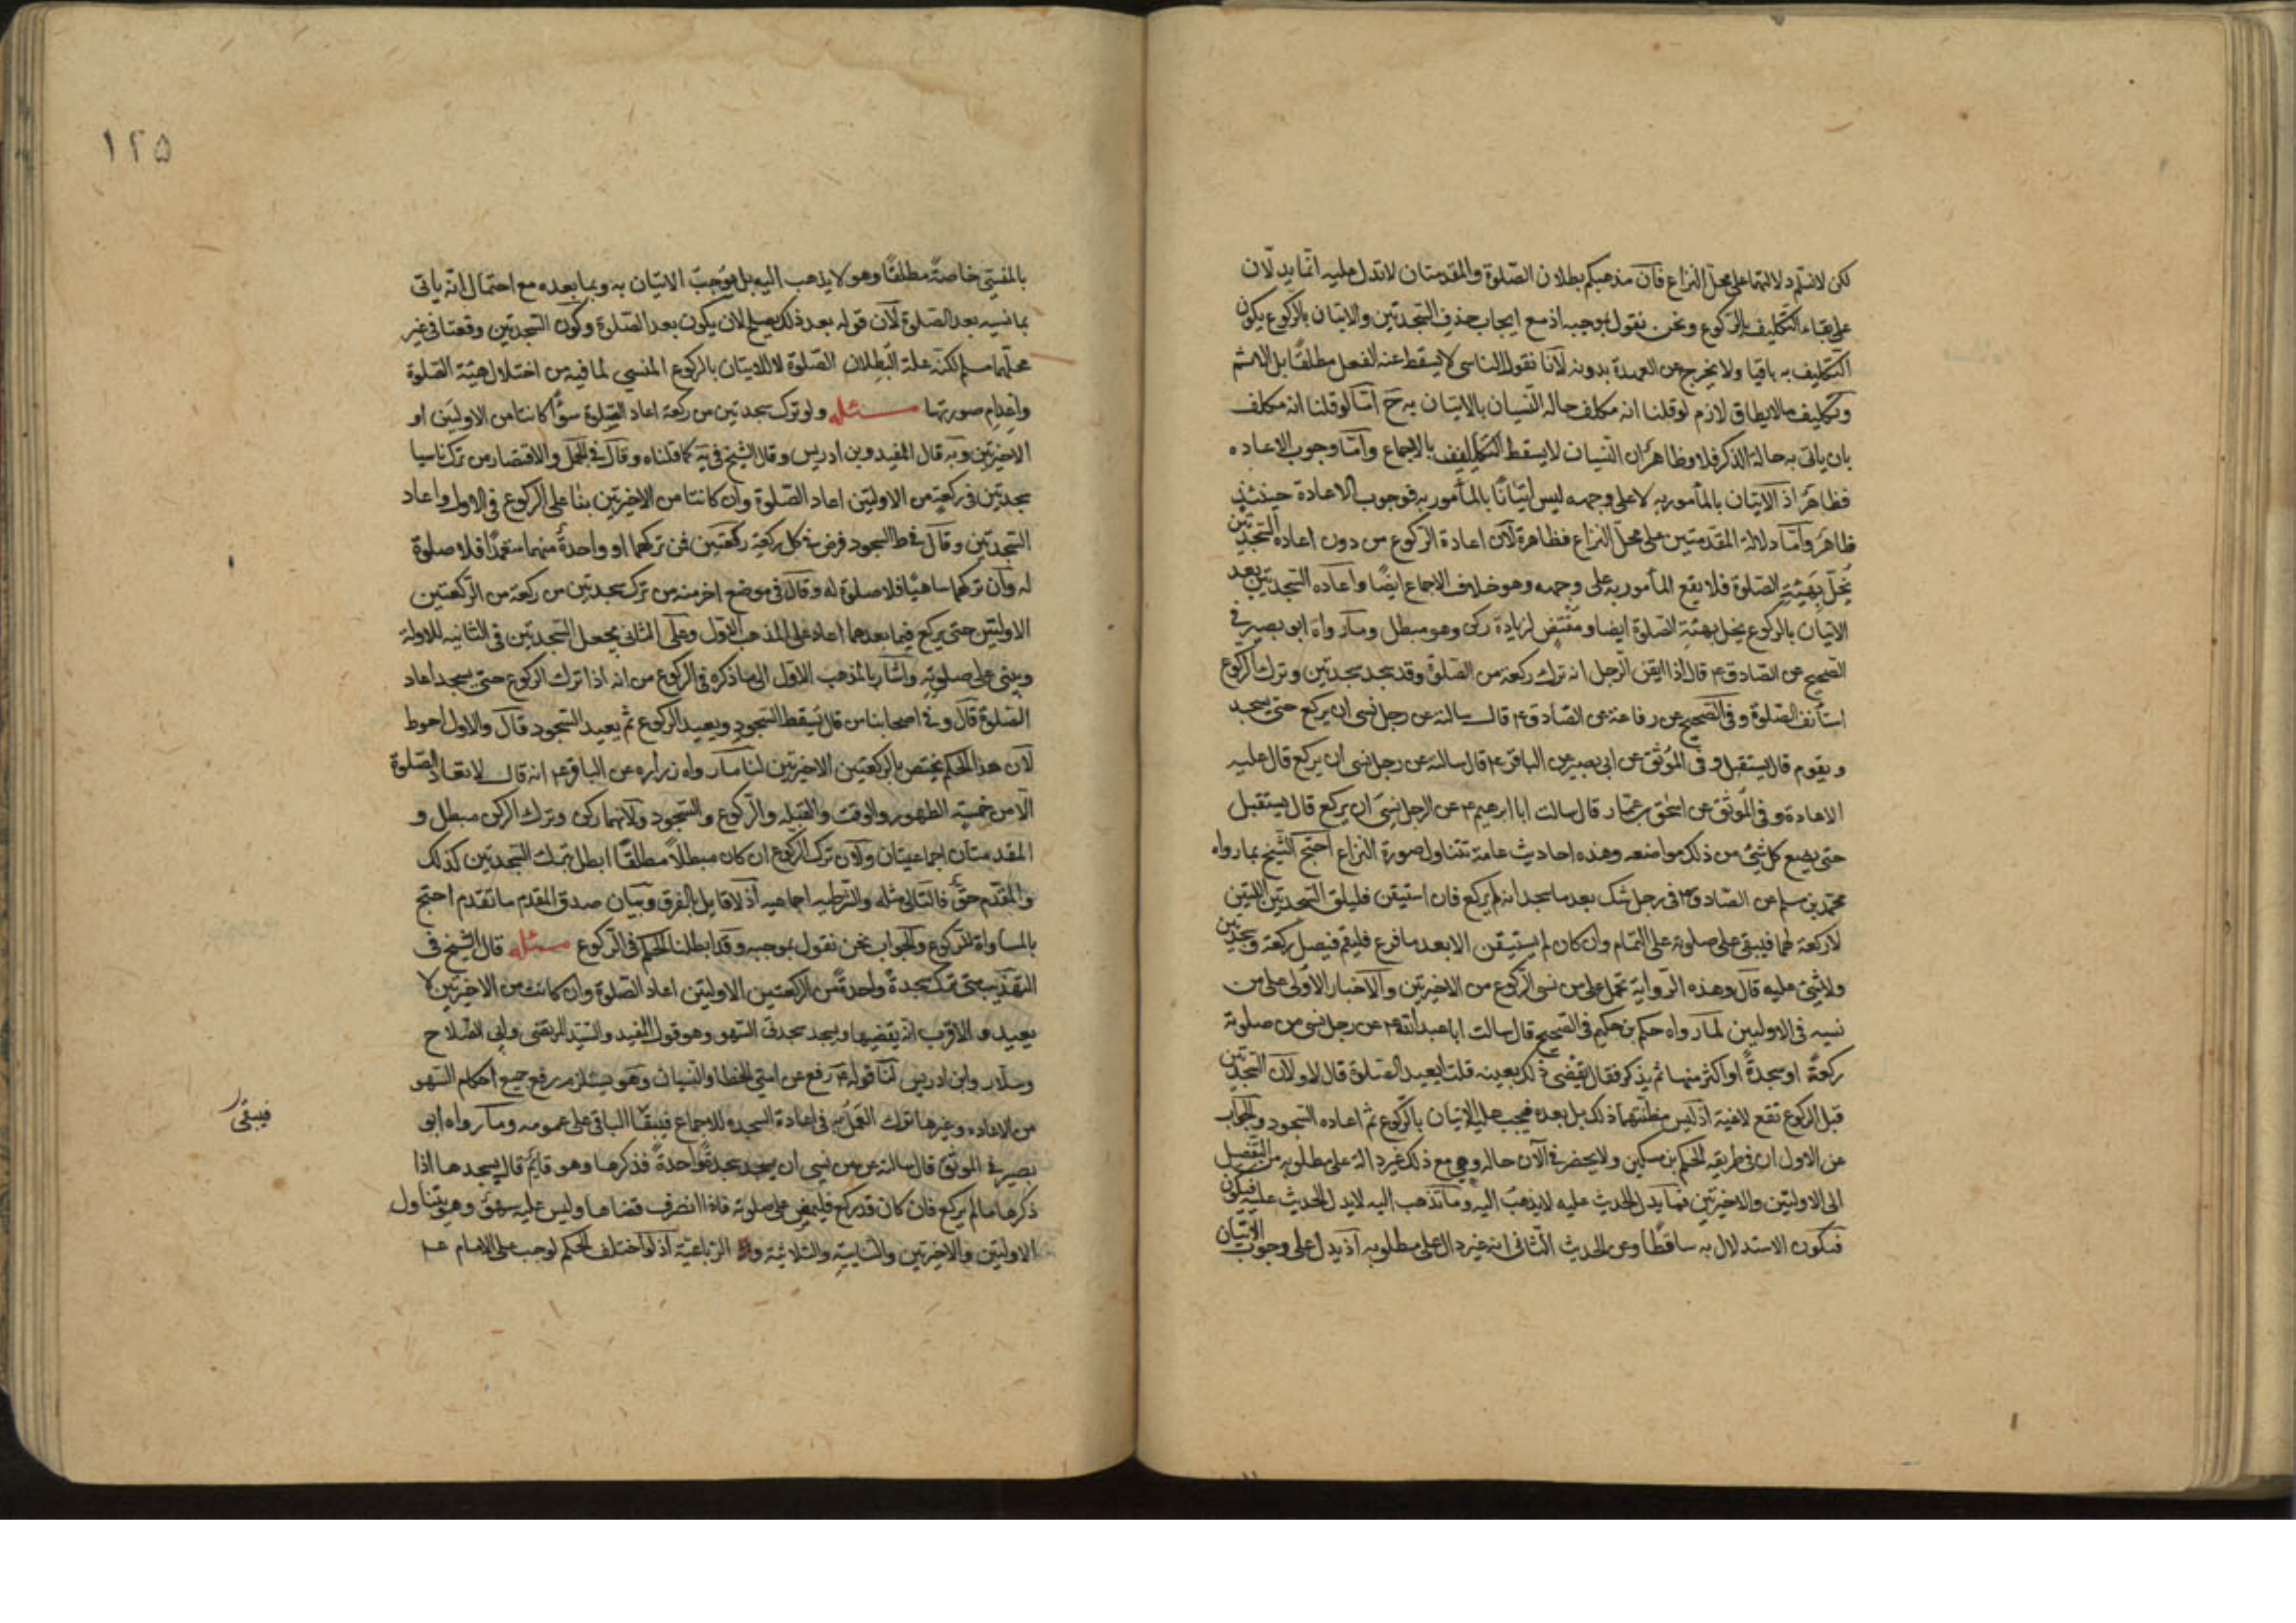 لكن لا نسلم دلالتهما على محل النزاع فان مذهبكم بطلان الصلوة والمقدمتان لا تدل عليه انما يدلان
على بقاء التكليف بالركوع ونحن نقول بموجبه اذ مع ايجاب حذف السجدتين والاتيان بالركوع يكون
التكليف به باقيا ولا يخرج عن العهدة بدونه لانا نقول الناسى لا يسقط عنه الفعل مطلقا بل الاثم
وتكليف ما لا يطاق لازم لو قلنا انه مكلف حاله النسيان بالاتيان به ح اما لو قلنا انه مكلف
بان ياتى به حالة الذكر فلا وظاهر ان النسيان لا يسقط التكليف بالاجماع واما وجوب الاعاده
فظاهر اذ الاتيان بالمأمور به لا على وجهه ليس اتيانا بالمأمور به فوجوب الاعادة حينئذ
ظاهر واما دلالة المقدمتين على محل النزاع فظاهرة لان اعادة الركوع من دون اعاده السجدتين
يخل بهيئة الصلوة فلا يقع المأمور به على وجهه وهو خلاف الاجماع ايضا واعاده السجدتين بعد
الاتيان بالركوع يخل بهيئة الصلوة ايضا ومقتض لزيادة ركن وهو مبطل وما رواه ابو بصير في
الصحيح عن الصادق ع قال اذا ايقن الرجل انه ترك ركعة من الصلوة وقد سجد سجدتين وترك الركوع
استأنف الصلوة وفى الصحيح عن رفاعة عن الصادق ع قال سالته عن رجل نسى ان يركع حتى يسجد
ويقوم قال يستقبل وفى الموثق عن ابى بصير عن الباقر ع قال سالته عن رجل نسى ان يركع قال عليه
الاعادة وفى الموثق عن اسحق بن عمار قال سالت ابا ابرهيم ع عن الرجل نسى ان يركع قال يستقبل
حتى يضع كل شئ من ذلك مواضعه وهذه احاديث عامة تتناول صورة النزاع احتج الشيخ بما رواه
محمد بن مسلم عن الصادق ع فى رجل شك بعد ما سجد انه لم يركع فان استيقن فليلق السجدتين اللتين
لا ركعة لهما فيبنى على صلوته على التمام وان كان لم يستيقن الا بعد ما فرغ فليقم فيصل ركعة وسجدتين
ولا شئ عليه قال وهذه الرواية تحمل على من نسى الركوع من الاخيرتين والاخبار الاولى على من
نسيه فى الاوليين لما رواه حكم بن حكيم فى الصحيح قال سالت ابا عبدالله ع عن رجل نسى من صلوته
ركعة او سجدة او اكثر منهما ثم يذكر فقال يقضى ذلك بعينه قلت ايعيد الصلوة قال لا ولان السجدتين
قبل الركوع تقع لاغية اذ ليس مظنتهما ذلك بل بعده فيجب عليه الاتيان بالركوع ثم اعاده السجود والجواب
عن الاول ان فى طريقه الحكم بن مسكين ولا يحضر فى الآن حاله وهي مع ذلك غير دالة على مطلوبه من التفصيل
الى الاوليتين والاخيرتين فما يدل الحديث عليه لا يذهب اليه وما تذهب اليه لا يدل الحديث عليه فيكون
فيكون الاستدلال به ساقطا وعن الحديث الثانى انه غير دال على مطلوبه اذ يدل على وجوب الاتيان
١٢٥
بالمنسى خاصة مطلقا وهو لا يذهب اليه بل يوجب الاتيان به وبما بعده مع احتمال انه ياتى
بما نسيه بعد الصلوة لان قوله بعد ذلك يصلح لان يكون بعد الصلوة وكون السجدتين وقعتا فى غير
محلهما مسلم لكنه علة لبطلان الصلوة لا للاتيان بالركوع المنسى لما فيه من اختلال هيئة الصلوة
واعدام صورتها مسئله ولو ترك سجدتين من ركعة اعاد الصلوة سوا كانتا من الاوليتين او
الاخيرتين وبه قال المفيد وبن ادريس وقال الشيخ فى يه كما قلناه وقال فى الجمل والاقتصاد من ترك ناسيا
سجدتين فى ركعة من الاوليتين اعاد الصلوة وان كانتا من الاخيرتين بنا على الركوع فى الاول واعاد
السجدتين وقال فى ط السجود فرض فى كل ركعة ركعتين فمن تركهما او واحدة منهما متعمدا فلا صلوة
له وان تركهما ساهيا فلا صلوة له وقال فى موضع اخر منه من ترك سجدتين من ركعة من الركعتين
الاوليتين حتى يركع فيما بعدهما اعاد على المذهب الاول وعلى الثانى يجعل السجدتين فى الثانيه للاولة
ويبنى على صلوته واشار بالمذهب الاول الى ما ذكره فى الركوع من انه اذا ترك الركوع حتى يسجد اعاد
الصلوة قال وفى اصحابنا من قال يسقط السجود ويعيد الركوع ثم يعيد السجود قال والاول احوط
لان هذا الحكم يختص بالركعتين الاخيرتين لنا ما رواه زراره عن الباقر ع انه قال لا تعاد الصلوة
الا من خمسة الطهور والوقت والقبله والركوع والسجود ولانهما ركن وترك الركن مبطل و
المقدمتان اجماعيتان ولان ترك الركوع ان كان مبطلا مطلقا ابطل ترك السجدتين كذلك
والمقدم حق فالتالى مثله والشرطيه اجماعيه اذ لا قايل بالفرق وبيان صدق المقدم ما تقدم احتج
بالمساواة للركوع والجواب نحن نقول بموجبه وقد ابطلنا الحكم فى الركوع مسئله قال الشيخ فى
التهذيب متى ترك سجدة واحدة من الركعتين الاوليتين اعاد الصلوة وان كانت من الاخيرتين لا
يعيد والاقرب انه يقضيها ويسجد سجدتى السهو وهو قول المفيد والسيد المرتضى وابى الصلاح
وسلار وابن ادريس لنا قوله ع رفع عن امتى الخطا والنسيان وهو يستلزم رفع جميع احكام السهو
من الاعاده وغيرها ترك العمل به فى اعادة السجده للاجماع فيبقا الباقى على عمومه وما رواه ابو
فيبقى
بصير فى الموثق قال سالته عن من نسى ان يسجد سجدة واحدة فذكرها وهو قايم قال يسجدها اذا
ذكرها ما لم يركع فان كان قد ركع فليمض على صلوته فاذا انصرف قضاها وليس عليه سهو وهو يتناول
الاوليتين والاخيرتين والثنائية والثلاثية والرباعية اذ لو اختلف الحكم لوجب على الامام ع